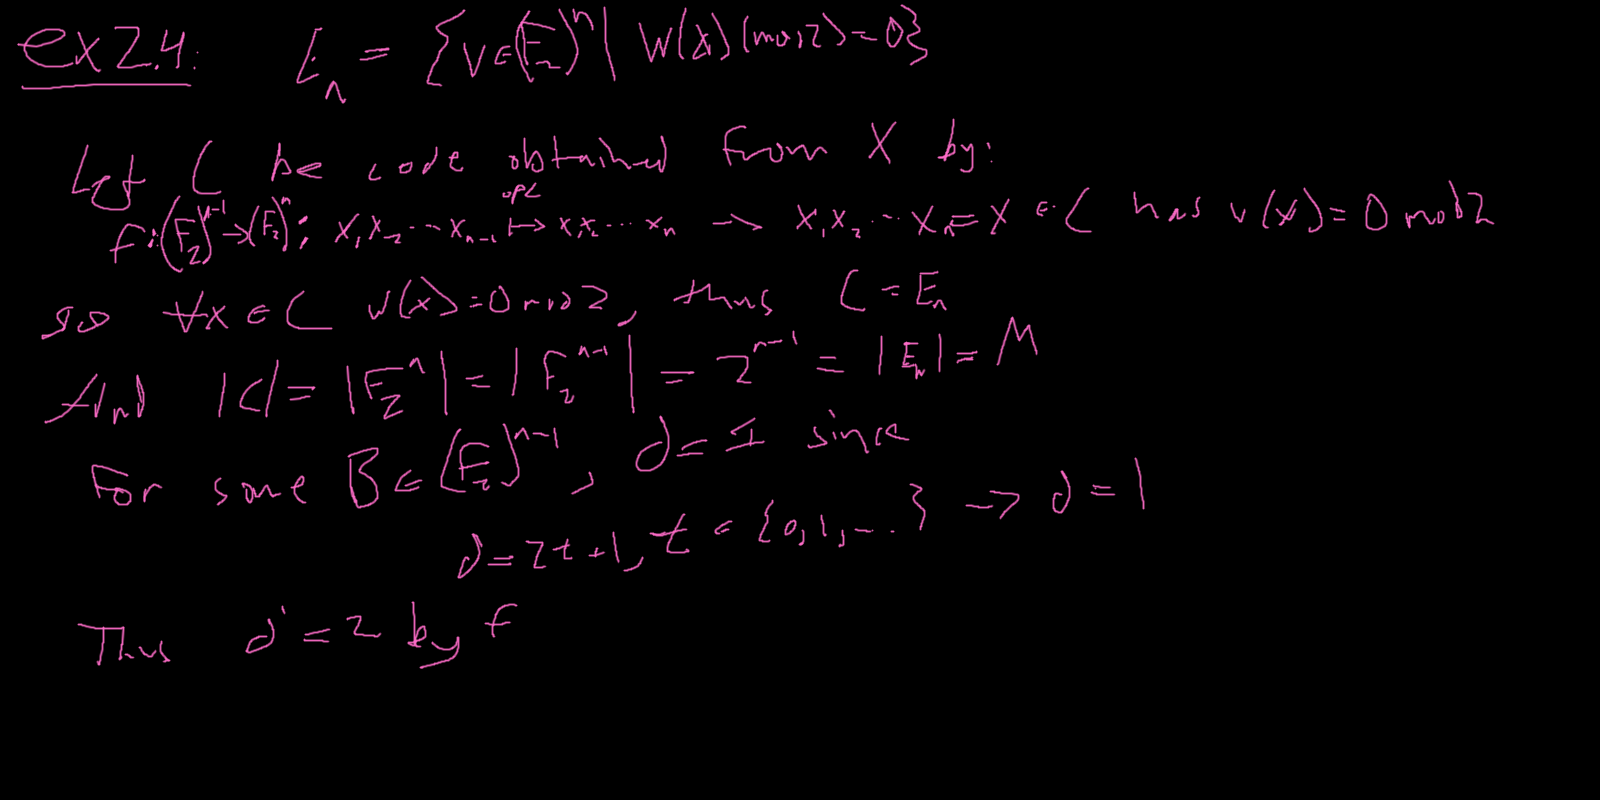 ex 2.4: E_n = {v ∈ (F_2)^n | W(x) (mod 2) = 0}
Let C be code obtained from X by:
opc
f: (F_2)^{n-1} → (F_2)^n; x_1 x_2 ... x_{n-1} ↦ x_1 x_2 ... x_n → x_1 x_2 ... x_n = x ∈ C has w(x) = 0 mod 2
so ∀x ∈ C w(x) = 0 mod 2, thus C = E_n
And |C| = |F_2^n| = |F_2^{n-1}| = 2^{n-1} = |E_n| = M
For some B ∈ (F_2)^{n-1}, d = 1 since
d = 2t + 1, t ∈ {0, 1, ...} → d = 1
Thus d' = 2 by f